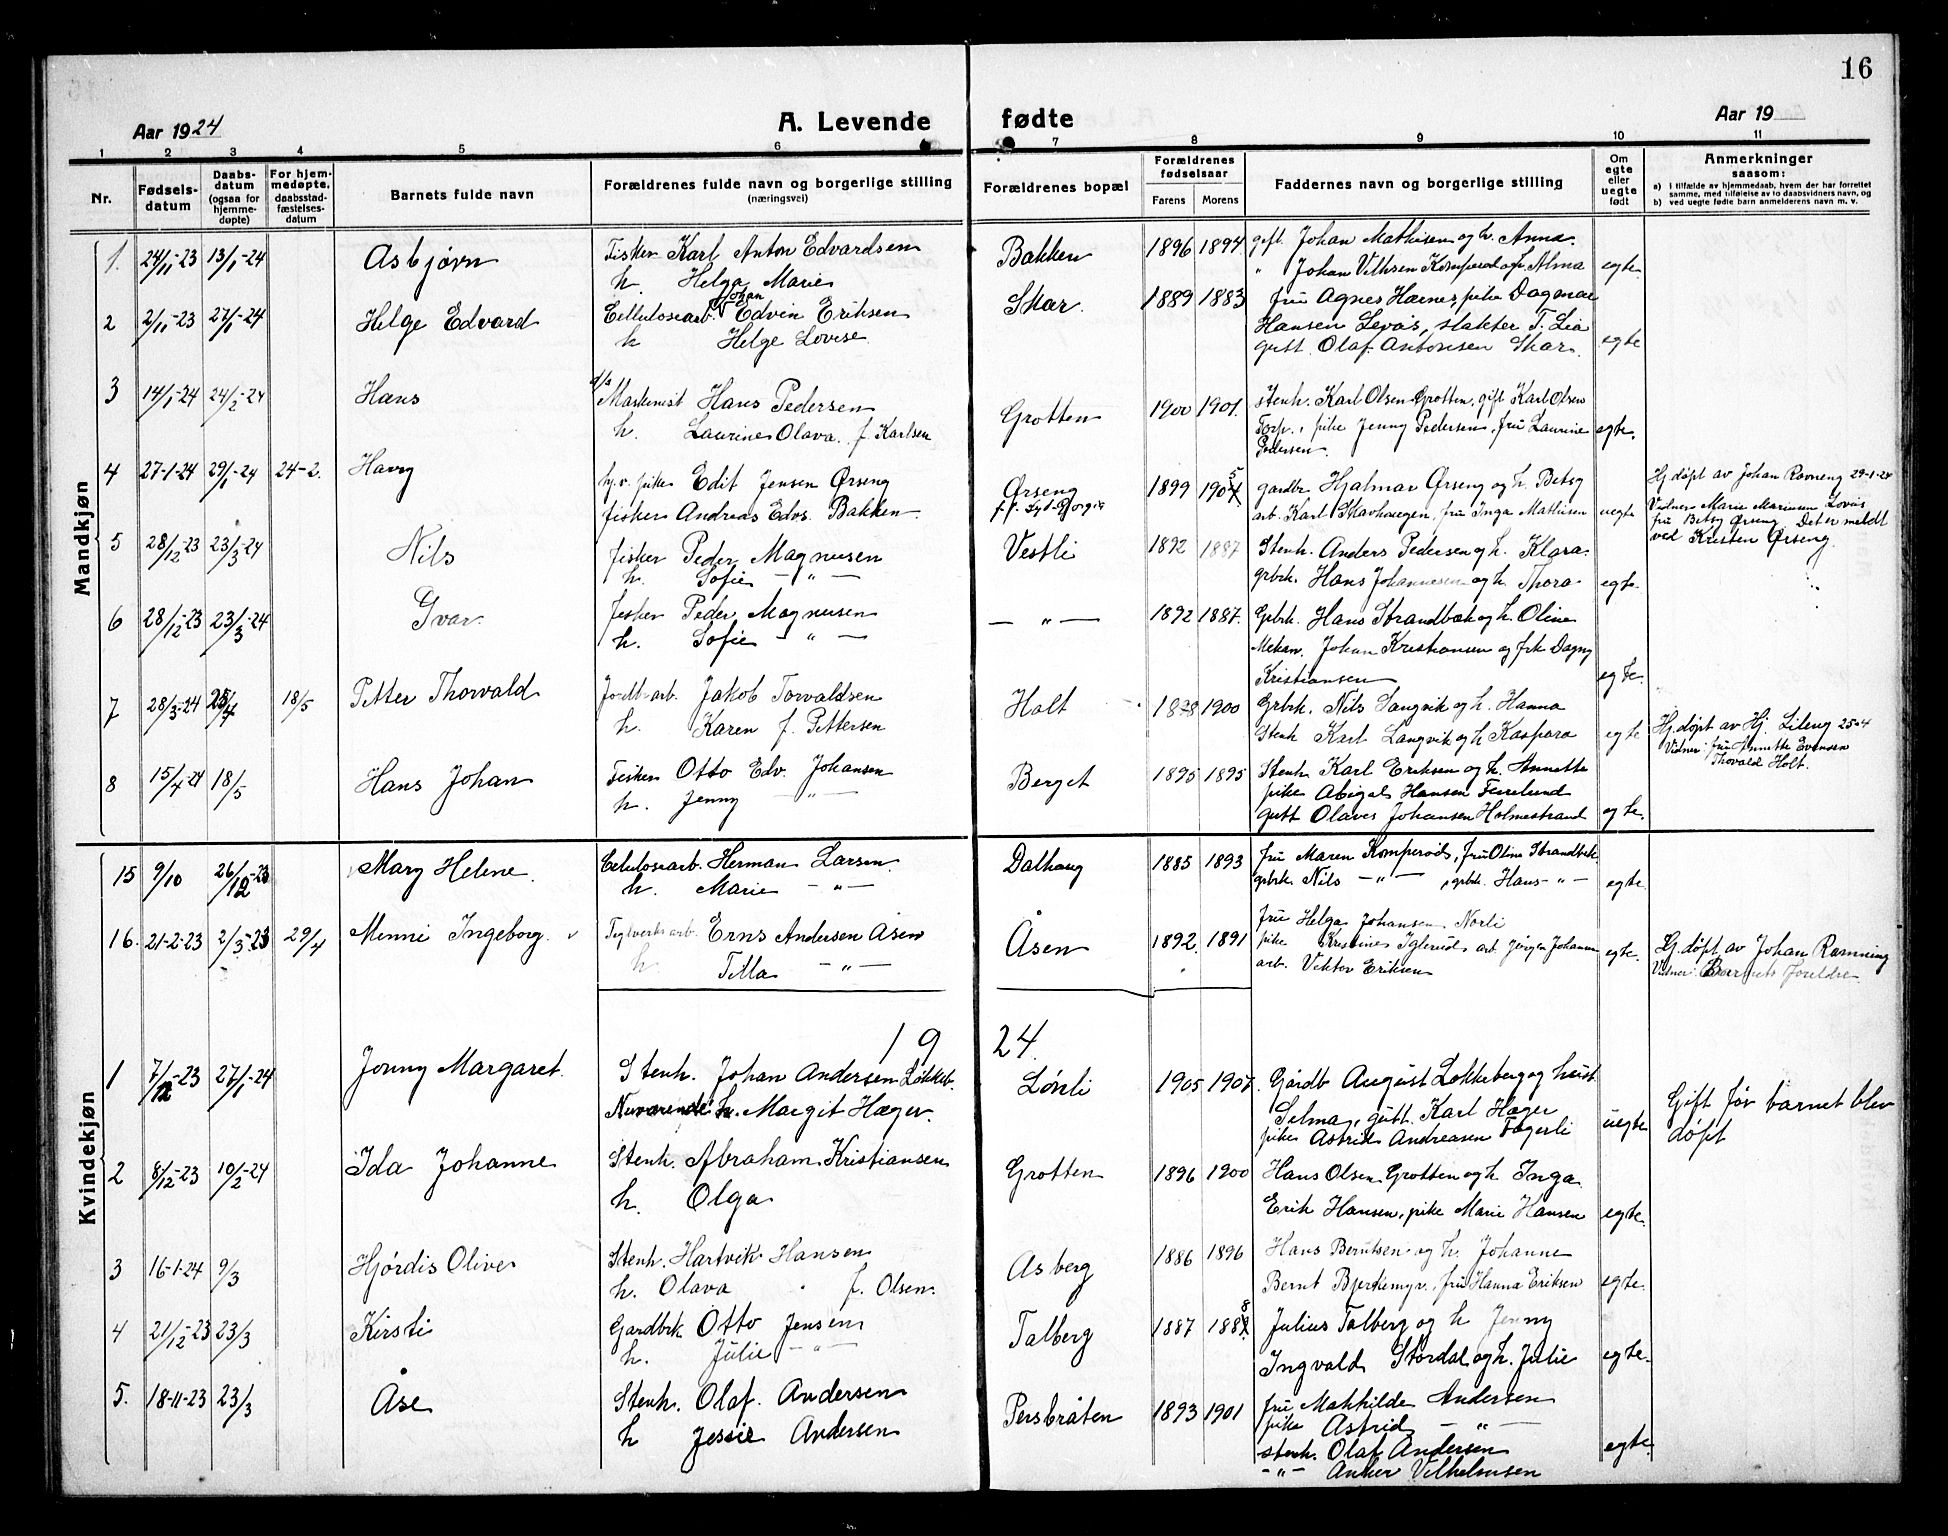 16
Aar 1924
A. Levende fødte
Aar 19
1 2 3 4 5 6 7 8 9 10 11
Nr.
Fødselsdatum
Daabsdatum (ogsaa for hjemmedøpte)
For hjemmedøpte, daabsstadfæstelsesdatum
Barnets fulde navn
Forældrenes fulde navn og borgerlige stilling (næringsvei)
Forældrenes bopæl
Forældrenes fødselsaar
Farens Morens
Faddernes navn og borgerlige stilling
Om egte eller uegte født
Anmerkninger saasom:
a) I tilfælde av hjemmedaab, hvem der har forrettet samme, med tilføielse av to daabsvidners navn, og
b) ved uegte fødte barn anmelderens navn m. v.
Mandkjøn
1. 24/11-23 13/1-24 Asbjørn Fisker Karl Anton Edvardsen Bakken 1896 1894 gift. Johan Mathisen og h. Anna.
h. Helga Marie " Johan Vilhsen Komperød og h. Alma egte
2 2/11-23 27/1-24 Helge Edvard Cellulosearb. Johan Edvin Eriksen Skar. 1889 1883 fru Agnes Hærnes, pike Dagmar
h Helge Lovise. Hansen Levås, slakter T. Lia
gutt. Olaf Antonsen Skar. egte
3 14/1-24 24/2-24 Hans d/s Maskinist Hans Pedersen Grotten 1900 1901. Stenh. Karl Olsen Grotten, gift Karl Olsen
h. Laurine Olava f. Karlsen Torp., pike Jenny Pedersen, fru Laurine
Pedersen. egte.
4 27-1-24 29/1-24 24-2. Harry hj.v. pike Edit Jensen Ørseng Ørseng 1899 1905 gardbr. Hjalmar Ørseng og h. Betsy Hj. døpt av Johan Ravneng 29-1-24
fisker Andreas Edvs. Bakken arb. Karl Skavhaugen, fru Inga Mathisen uegte Vidner Marie Marinsen Lovås
fru Betsy Ørseng. Det er meldt
ved Kristen Ørseng.
5 28/12-23 23/3-24 Nils fisker Peder Magnusen Vestli 1892 1887 Stenh. Anders Pedersen og h. Klara.
h. Sofie — " — grbrk. Hans Johannesen og h. Thora. egte.
6 28/12-23 23/3-24 Ivar. fisker Peder Magnusen — " — 1892 1887. Grbrk. Hans Strandbæk og h. Oline
h. Sofie — " — Mekan. Johan Kristiansen og frk Dagny
Kristiansen egte.
7 28/3-24 25/4 18/5 Petter Thorvald Jordbr.arb. Jakob Torvaldsen Holt 1898 1900 Grbrk. Nils Langvik og h. Hanna
h. Karen f. Pettersen Stenh Karl Langvik og h Kaspara egte Hj. døpt av Hj. Lileng 25-4
Vidner: fru Annette Evensen
Thovald Holt.
8 15/4-24 18/5 Hans Johan Fisker Otto Edv. Johansen Berget 1895 1895 Stenh. Karl Eriksen og h. Annette
h. Jenny — " — pike Abigal Hansen Furulund
gutt Olaves Johansen Holmestrand egte.
Kvindekjøn
15 9/10 26/12-23 Mary Helene. Celulosearb. Herman Larsen. Dalhaug 1885 1893 fru Maren Komperød, fru Oline Strandbæk
h. Marie — " — grbrk. Nils — " —, grbrk. Hans — " — egte.
16. 21-2-23 2/3-23 29/4 Menni Ingeborg. Teglverksarb. Erns Andersen Åsen Åsen 1892. 1891 fru Helga Johansen Norli
h Tilla — " — pike Kristine Iglerud, arb. Jørgen Johansen
arb. Viktor Eriksen egte. Hj. døpt av Johan Ramning
Vidner: Barnets Foreldre.
1924.
1 7/12-23 27/1-24 Jenny Margaret. Stenh. Johan Andersen Løkkeb. Lønli 1905 1907. Gårdb August Løkkeberg og hust
Nuværende h. Margit Hæger. Selma, gutt. Karl Hæger
pike Astrid Andreasen Fagerli uegte Gift før barnet blev døpt
2 8/12-23 10/2-24 Ida Johanne Stenh. Abraham Kristiansen Grotten 1896 1900 Hans Olsen Grotten og h Inga
h. Olga Erik Hansen, pike Marie Hansen egte.
3 16-1-24 9/3 Hjørdis Olive Stenh. Hartvik Hansen Asberg 1886 1896 Hans Berntsen og h. Johanne
h. Olava f. Olsen. Bernt Bjerkemyr, fru Hanna Eriksen egte.
4 21/12-23 23/3 Kirsti Gardbrk Otto Jensen Talberg 1887 1888 Julius Talberg og h Jenny
h. Julie — " — Ingvald Stordal og h. Julie egte.
5. 18-11-23 23/3 Åse Stenh. Olaf Andersen Persbråten 1893 1901 fru Makhilde Andersen
h Jessie Andersen pike Astrid — " —
stenh. Olaf Andersen
— " — Anker Vilhelmsen egte.